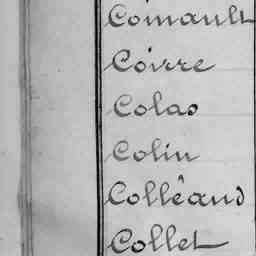 Coinault
Coirre
Colas
Colin
Colléaud
Collet